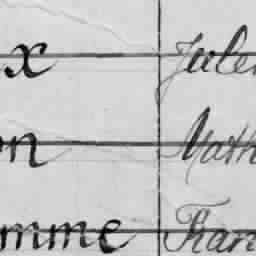 x Jules
on Math
mme Fran